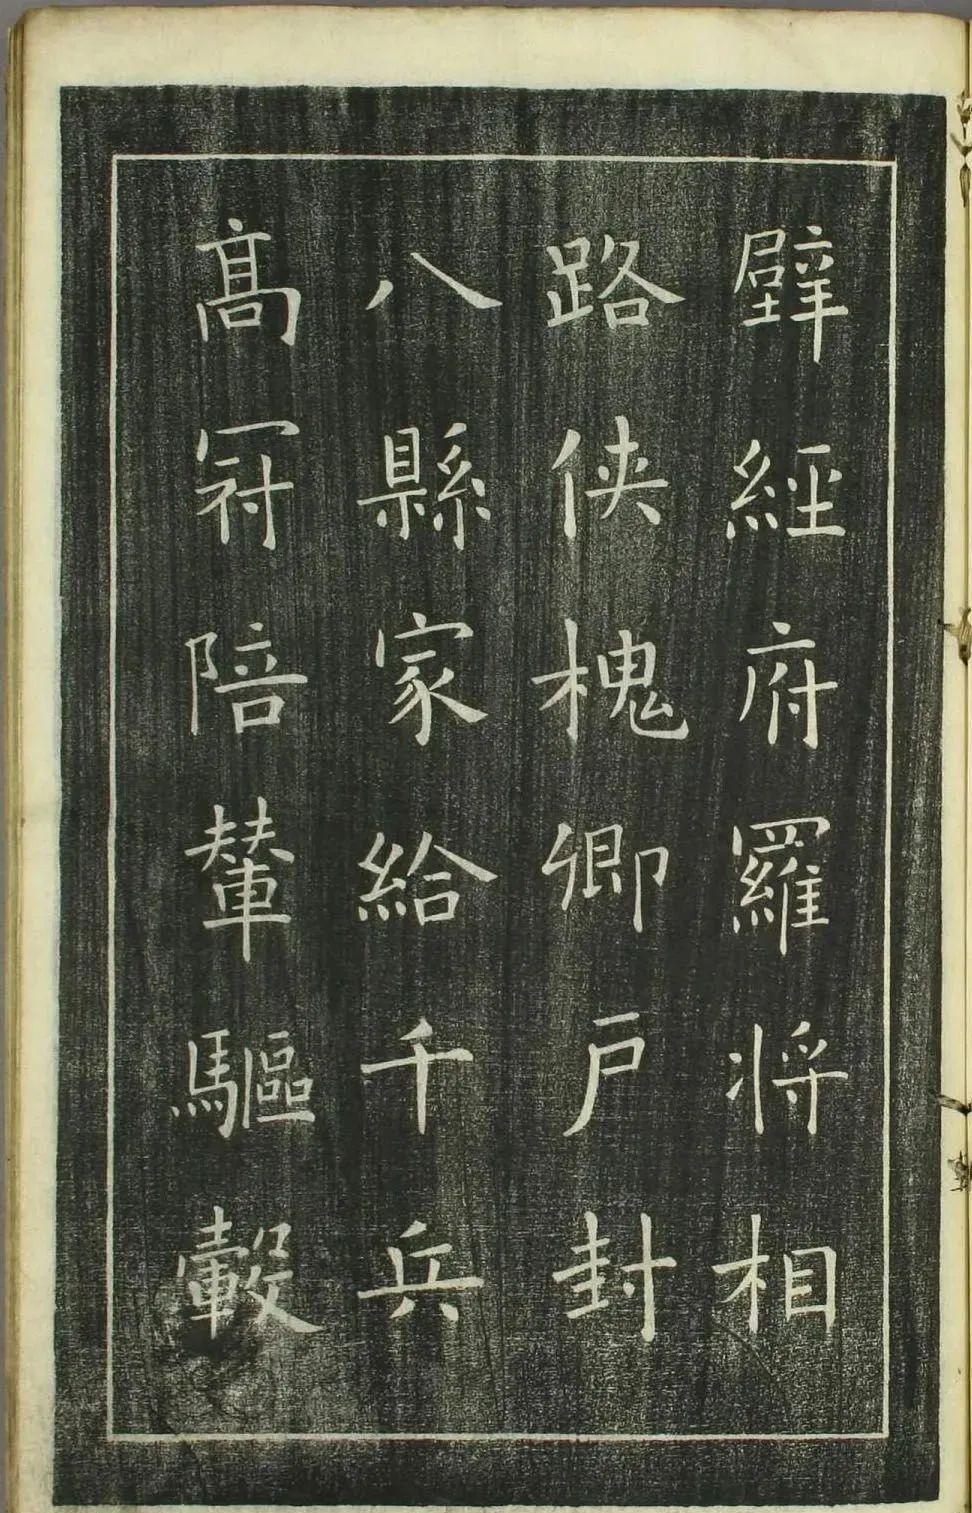 壁經府羅将相
路俠槐卿戸封
八縣家給千兵
高冠陪輦驅轂